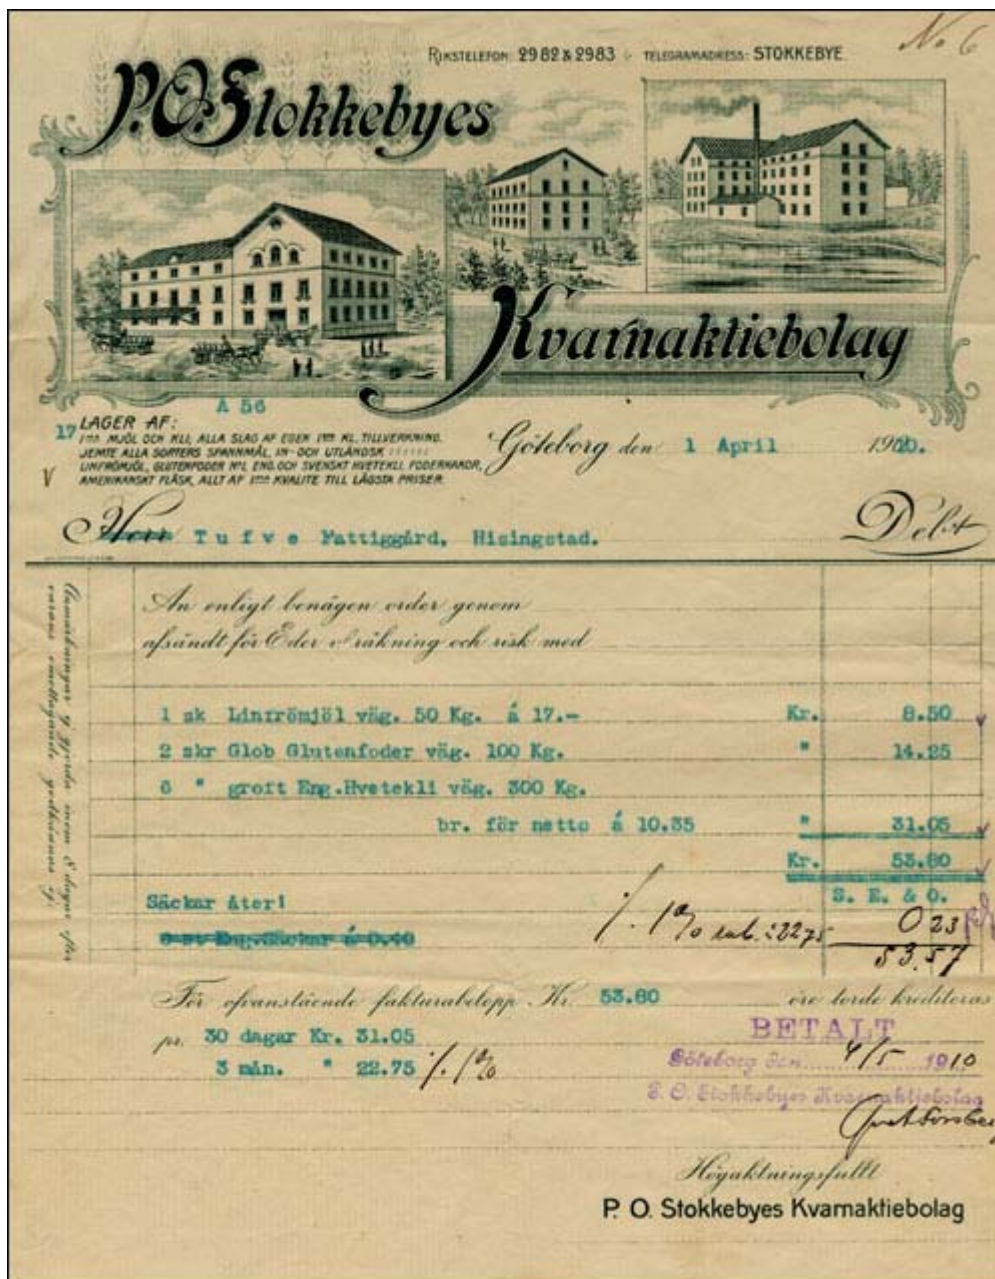 No 6
RIKSTELEFON: 2982 & 2983 TELEGRAMADRESS: STOKKEBYE.
P.O. Stokkebyes
Kvarnaktiebolag
A 56
17 LAGER AF:
1ma MJÖL OCH KLI, ALLA SLAG AF EGEN 1ma KL. TILLVERKNING.
JEMTE ALLA SORTERS SPANNMÅL, IN- OCH UTLÄNDSK
LINFRÖMJÖL, GLUTENFODER No1, ENG. OCH SVENSKT HVETEKLI, FODERKAKOR,
AMERIKANSKT FLÄSK, ALLT AF 1ma KVALITE TILL LÄGSTA PRISER.
Göteborg den 1 April 1910.
Herr Tufve Fattiggård, Hisingstad.
Debet
An enligt benägen order genom
afsändt för Eder räkning och risk med
1 sk Linfrömjöl väg. 50 Kg. á 17.- Kr. 8.50
2 skr Glob Glutenfoder väg. 100 Kg. " 14.25
6 " groft Eng.Hvetekli väg. 300 Kg.
br. för netto á 10.35 " 31.05
Kr. 53.80
S. E. & O.
Säckar åter!
6 st Eng.Säckar á 0.40
./. 1% rab. 22.75 0 23
53.57
För ofvanstående fakturabelopp Kr. 53.80 öre torde krediteras
pr. 30 dagar Kr. 31.05
3 mån. " 22.75 ./. 1%
BETALT
Göteborg den 4/5 1910
P. O. Stokkebyes Kvarnaktiebolag
Högaktningsfullt
P. O. Stokkebyes Kvarnaktiebolag
Anmärkningar ej gjorda inom 8 dagar efter
varans emottagande godkännas ej.